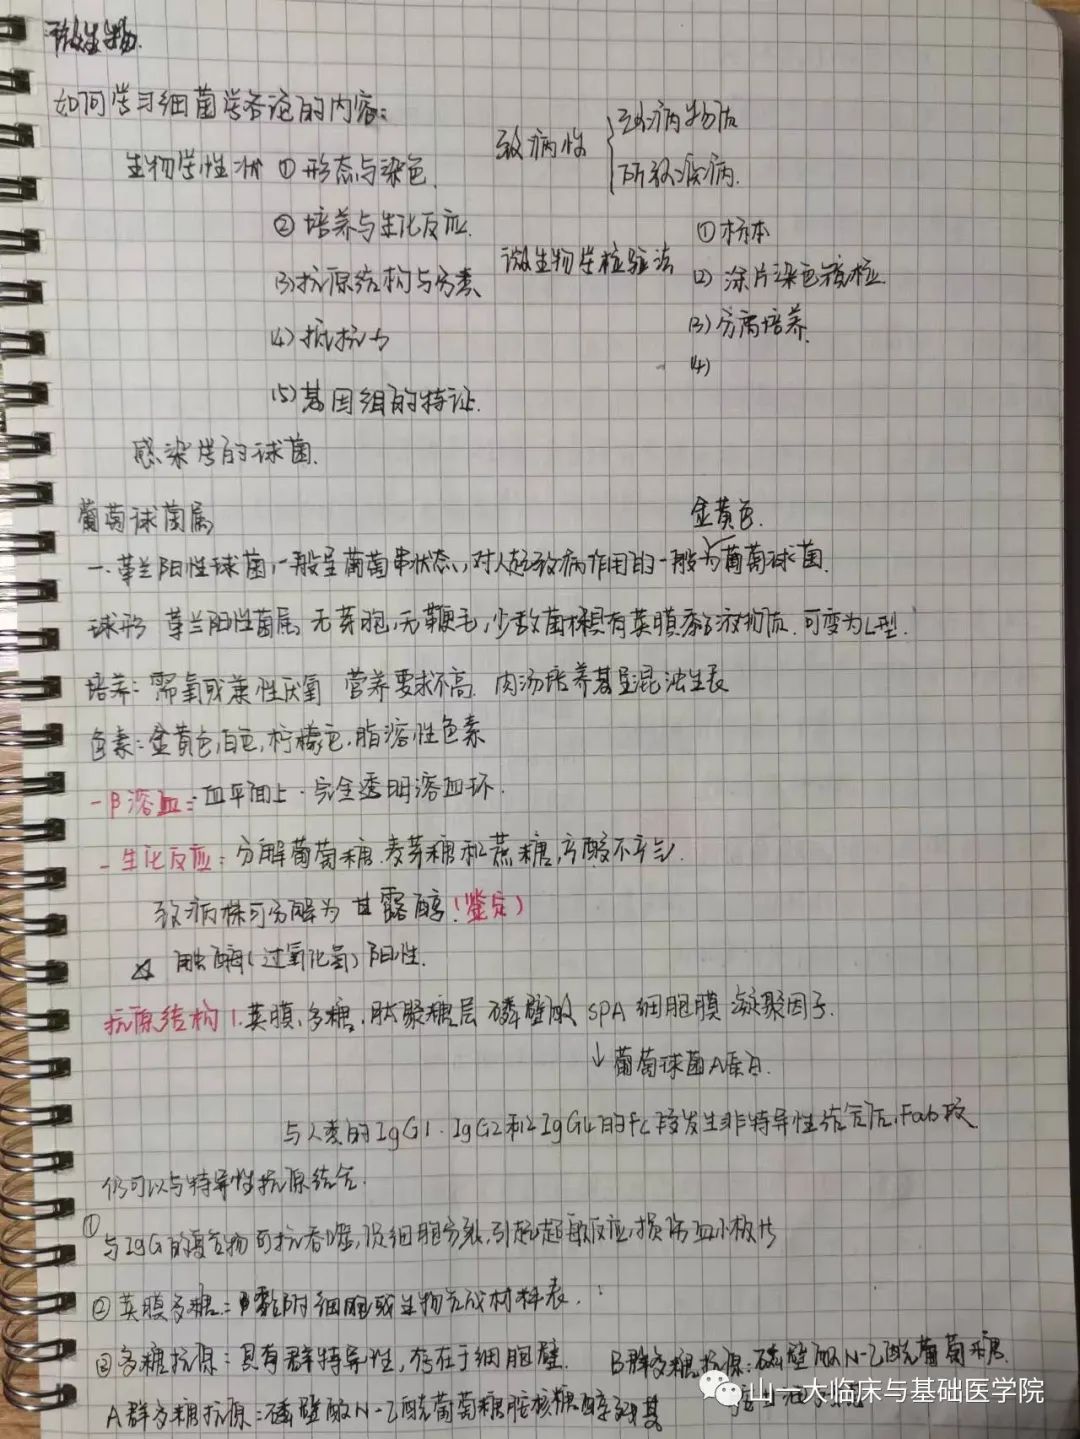 微生物.
如何学习细菌学各论的内容:
生物学性状 ① 形态与染色.
② 培养与生化反应.
(3) 抗原结构与分类
(4) 抵抗力
(5) 基因组的特证.
致病性 { 致病物质
所致疾病.
微生物学检验法 ① 标本
(2) 涂片染色镜检.
(3) 分离培养.
(4)
感染性的球菌.
葡萄球菌属
金黄色.
一.革兰阳性球菌,一般呈葡萄串状态,对人起致病作用的一般为葡萄球菌.
球形 革兰阳性菌属,无芽孢,无鞭毛,少数菌株具有荚膜黏液物质.可变为L型.
培养: 需氧或兼性厌氧 营养要求不高. 肉汤培养基呈混浊生长
色素: 金黄色,白色,柠檬色.脂溶性色素
-β溶血: 血平面上·完全透明溶血环.
-生化反应: 分解葡萄糖.麦芽糖和蔗糖,产酸不产气.
致病株可分解为 甘露醇(鉴定)
☆ 触酶(过氧化氢)阳性.
抗原结构 1.荚膜,多糖.肽聚糖层 磷壁酸 SPA 细胞膜 凝聚因子.
↓ 葡萄球菌A蛋白.
与人类的IgG1.IgG2和IgG4的Fc段发生非特异性结合后,Fab段
仍可以与特异性抗原结合.
① 与IgG的复合物可抗吞噬,促细胞分裂,引起超敏反应,损伤血小板片
② 荚膜多糖: 黏附细胞或生物合成材料表.
③ 多糖抗原: 具有群特异性,存在于细胞壁. B群多糖抗原: 磷壁酸N-乙酰葡萄糖
A群多糖抗原: 磷壁酸N-乙酰葡萄糖胺核糖醇残基
山一大临床与基础医学院